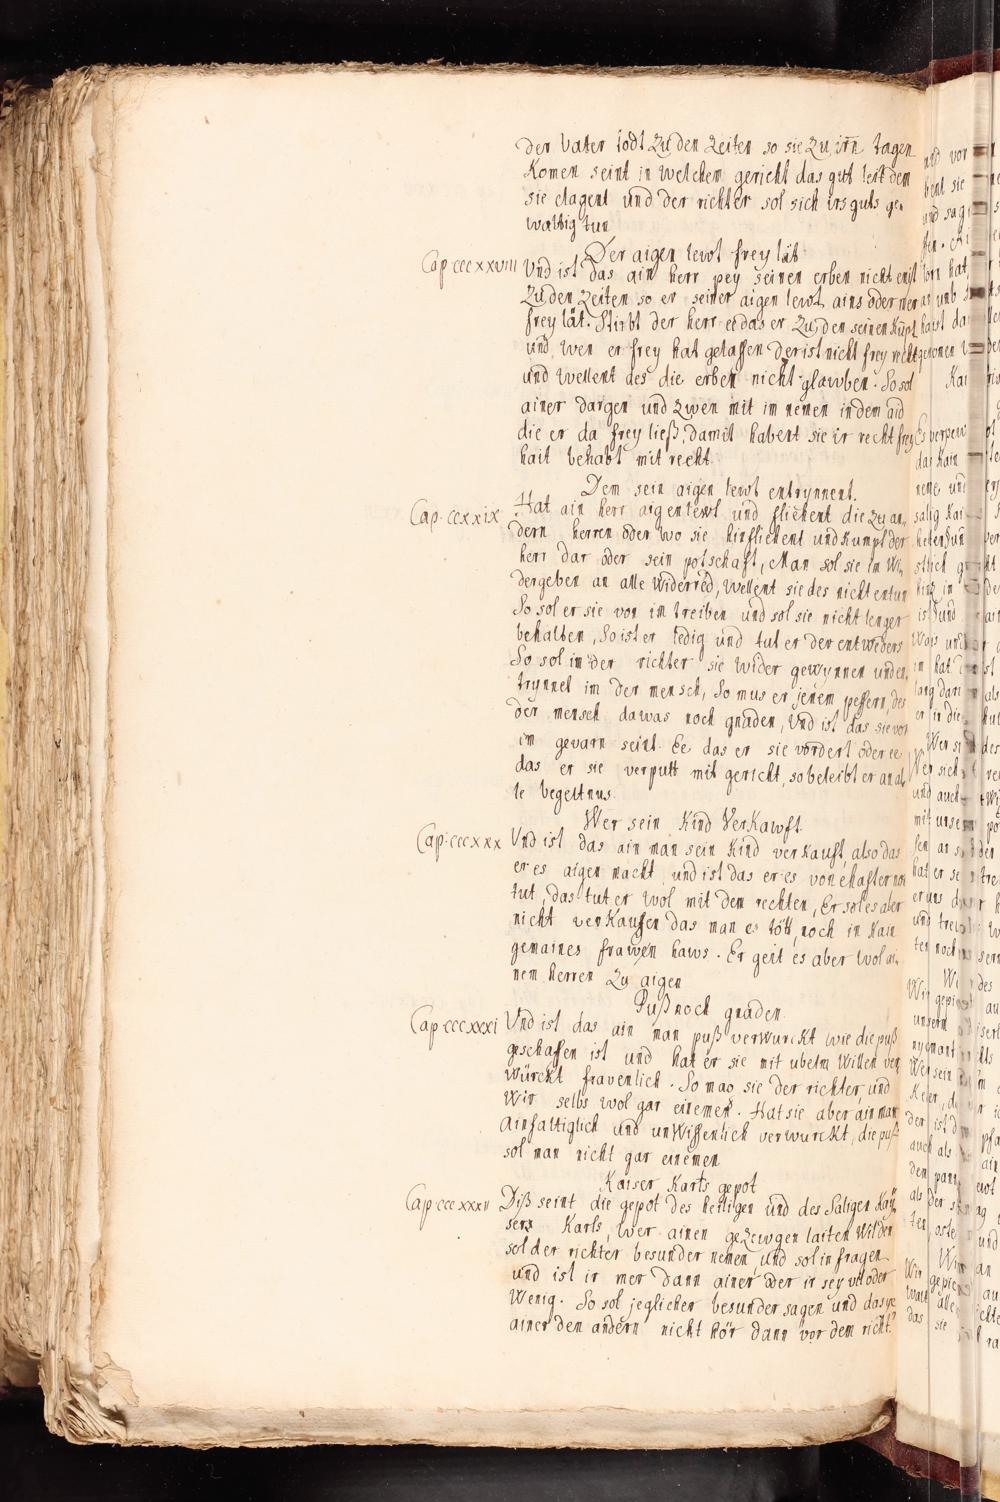 der vater todt zu den zeiten so sie zu irn tagen
komen seint in welchem gericht das gut leit dem
sie clagent und der richter sol sich irs guts ge-
waltig tun
Der aigen lewt frey lät
Cap. cccxxviii Und ist das ain herr pey seinen erben nicht enist
zu den zeiten so er seiner aigen lewt ains oder mer
frey lät. Stirbt der herr ee das er zu den seinen kumt
und wen er frey hat gelassen der ist nicht frey recht
und wellent des die erben nicht glawben. So sol
ainer dargen und zwen mit im nemen in dem aid
die er da frey ließ, damit habent sie ir recht frey
hait behabt mit recht.
Dem sein aigen lewt entrynnent.
Cap. ccxxix Hat ain herr aigen lewt und fliehent die zu an-
dern herren oder wo sie hinfliehent und kumpt der
herr dar oder sein potschaft, Man sol sie im wi-
dergeben an alle widerred, wellent sie des nicht entun
So sol er sie von im treiben und sol sie nicht lenger
behalten, So ist er ledig und tut er der entweders
So sol im der richter sie wider gewynnen und en-
trynnet im der mensch, So mus er jenem pessern, des
der mensch da was noch gnaden, Und ist das sie vor
im gevarn seint. Ee das er sie vordert oder ee
das er sie verputt mit gericht, so beleibt er an al-
le vegeltnus.
Wer sein Kind Verkawft.
Cap. cccxxx Und ist das ain man sein Kind verkauft, also das
er es aigen macht, und ist das er es von ehafter not
tut, das tut er wol mit dem rechten, Er sol es aber
nicht verkauffen das man es tött, noch in kain
gemaines frawen haws. Er geit es aber wol ai-
nem herren zu aigen
Puß noch gnaden.
Cap. cccxxxi Und ist das ain man puß verwurckt wie die puß
geschaffen ist und hat er sie mit ubelm willen ver-
würckt fravenlich. So mag sie der richter, und
wir selbs wol gar einemen. Hat sie aber ain man
ainfaltiglich und unwissenlich verwurckt, die puß
sol man nicht gar einemen
Kaiser Karls gepot
Cap. cccxxxii Diß seint die gepot des heiligen und des Saligen Kay-
sers Karls, wer ainen gezewgen laiten wil den
sol der richter besunder nemen, und sol in fragen
und ist ir mer dann ainer, oder ir sey vil oder
wenig. So sol jeglicher besunder sagen und das ye
ainer den andern nicht hör dann vor dem richt.